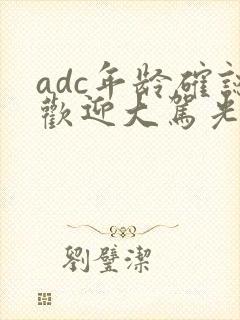 adc年龄確認
歡迎大駕光
劉璧潔